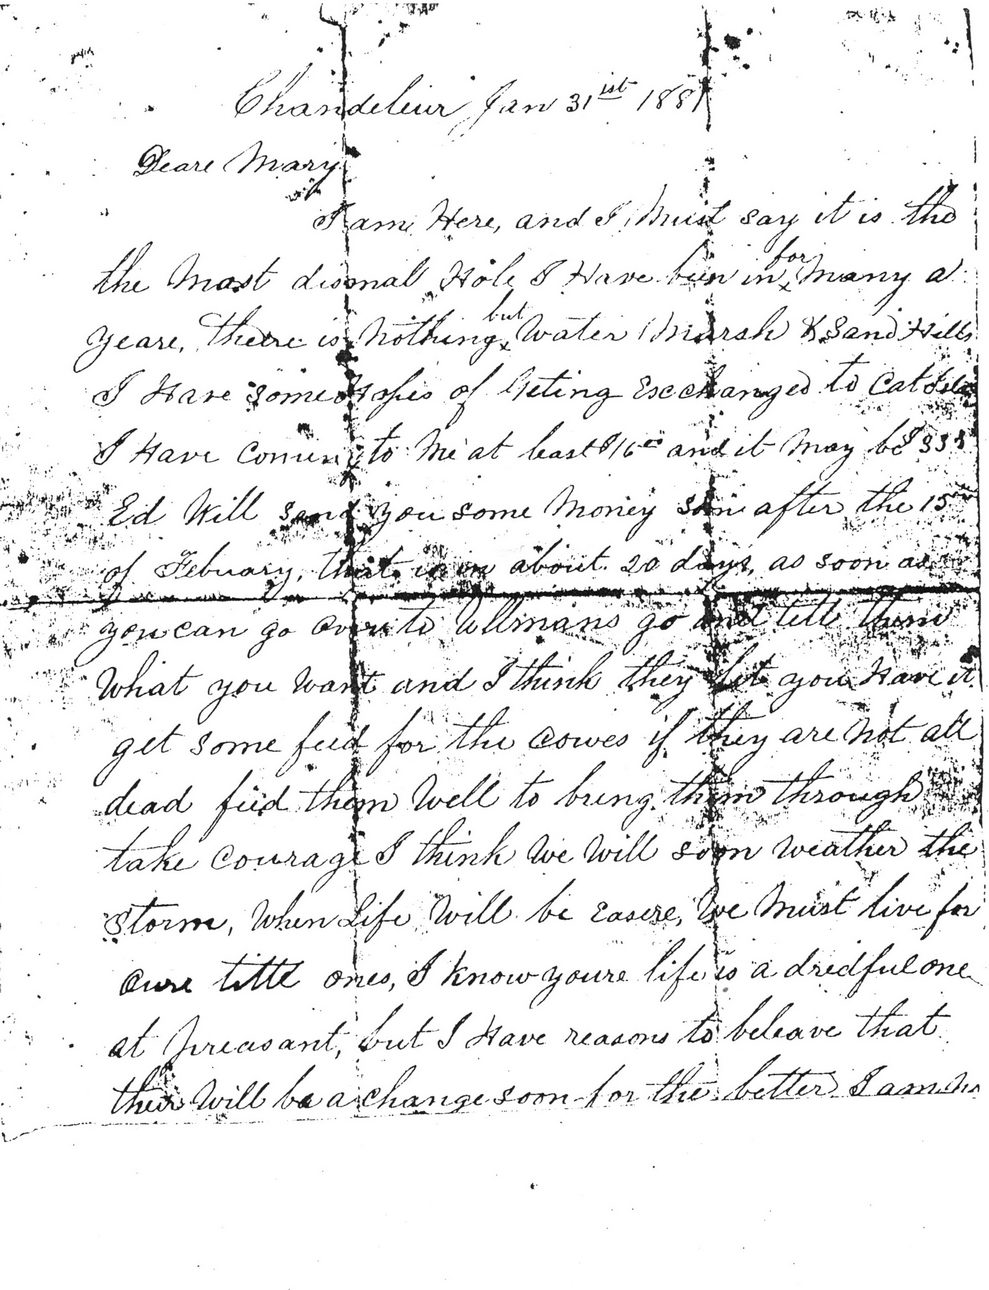 Chandeleur Jan 31ist 1881
Deare Mary
I am Here, and I Must say it is the
the Most dismal Hole I Have bien in for Many a
yeare, theere is Nothing but Water Marsh & Sand Hills
I Have some Hopes of Geting Excchanged to Cat
I Have Coming to Me at least $16 and it May be $33
Ed Will send you some Money soon after the 15
of Febuary, that is in about 20 days, as soon as
you can go over to Ullmans go and tell them
What you Want and I think they let you Have it
get some feed for the Cowes if they are Not all
dead feed them Well to bring them through
take Courage I think We Will soon weather the
Storm, When Life Will be Easere, We Must live for
oure littl ones, I know youre life is a dredful one
at Preasant, but I Have reasons to beleave that
their Will be a change soon for the better I am